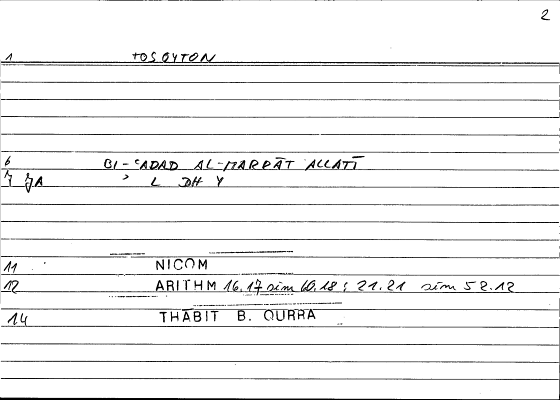 2
1 TOSOYTON
6 BI-ʿADAD AL-MARRĀT ALLATĪ
7 7A ʾ L DH Y
11 NICOM
12 ARITHM 16.17 sim 60.18 ; 21.21 sim 52.12
14 THABIT B. QURRA